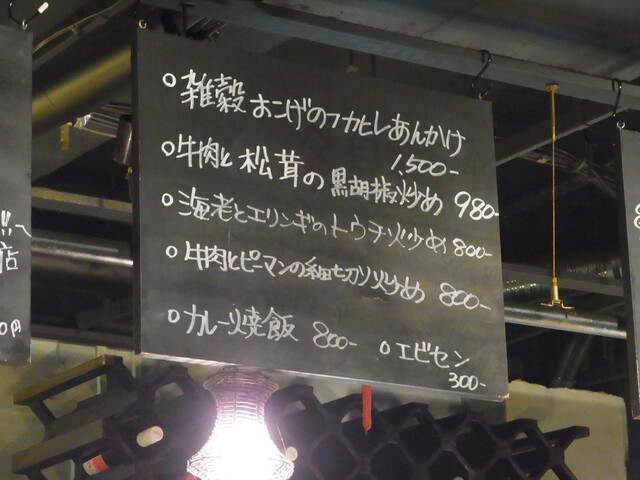 ○雑穀おこげのフカヒレあんかけ
1,500-
○牛肉と松茸の黒胡椒炒め 980-
○海老とエリンギのトウチ炒め 800-
○牛肉とピーマンの細切り炒め 800-
○カレー焼飯 800- ○エビセン
300-
店
0円